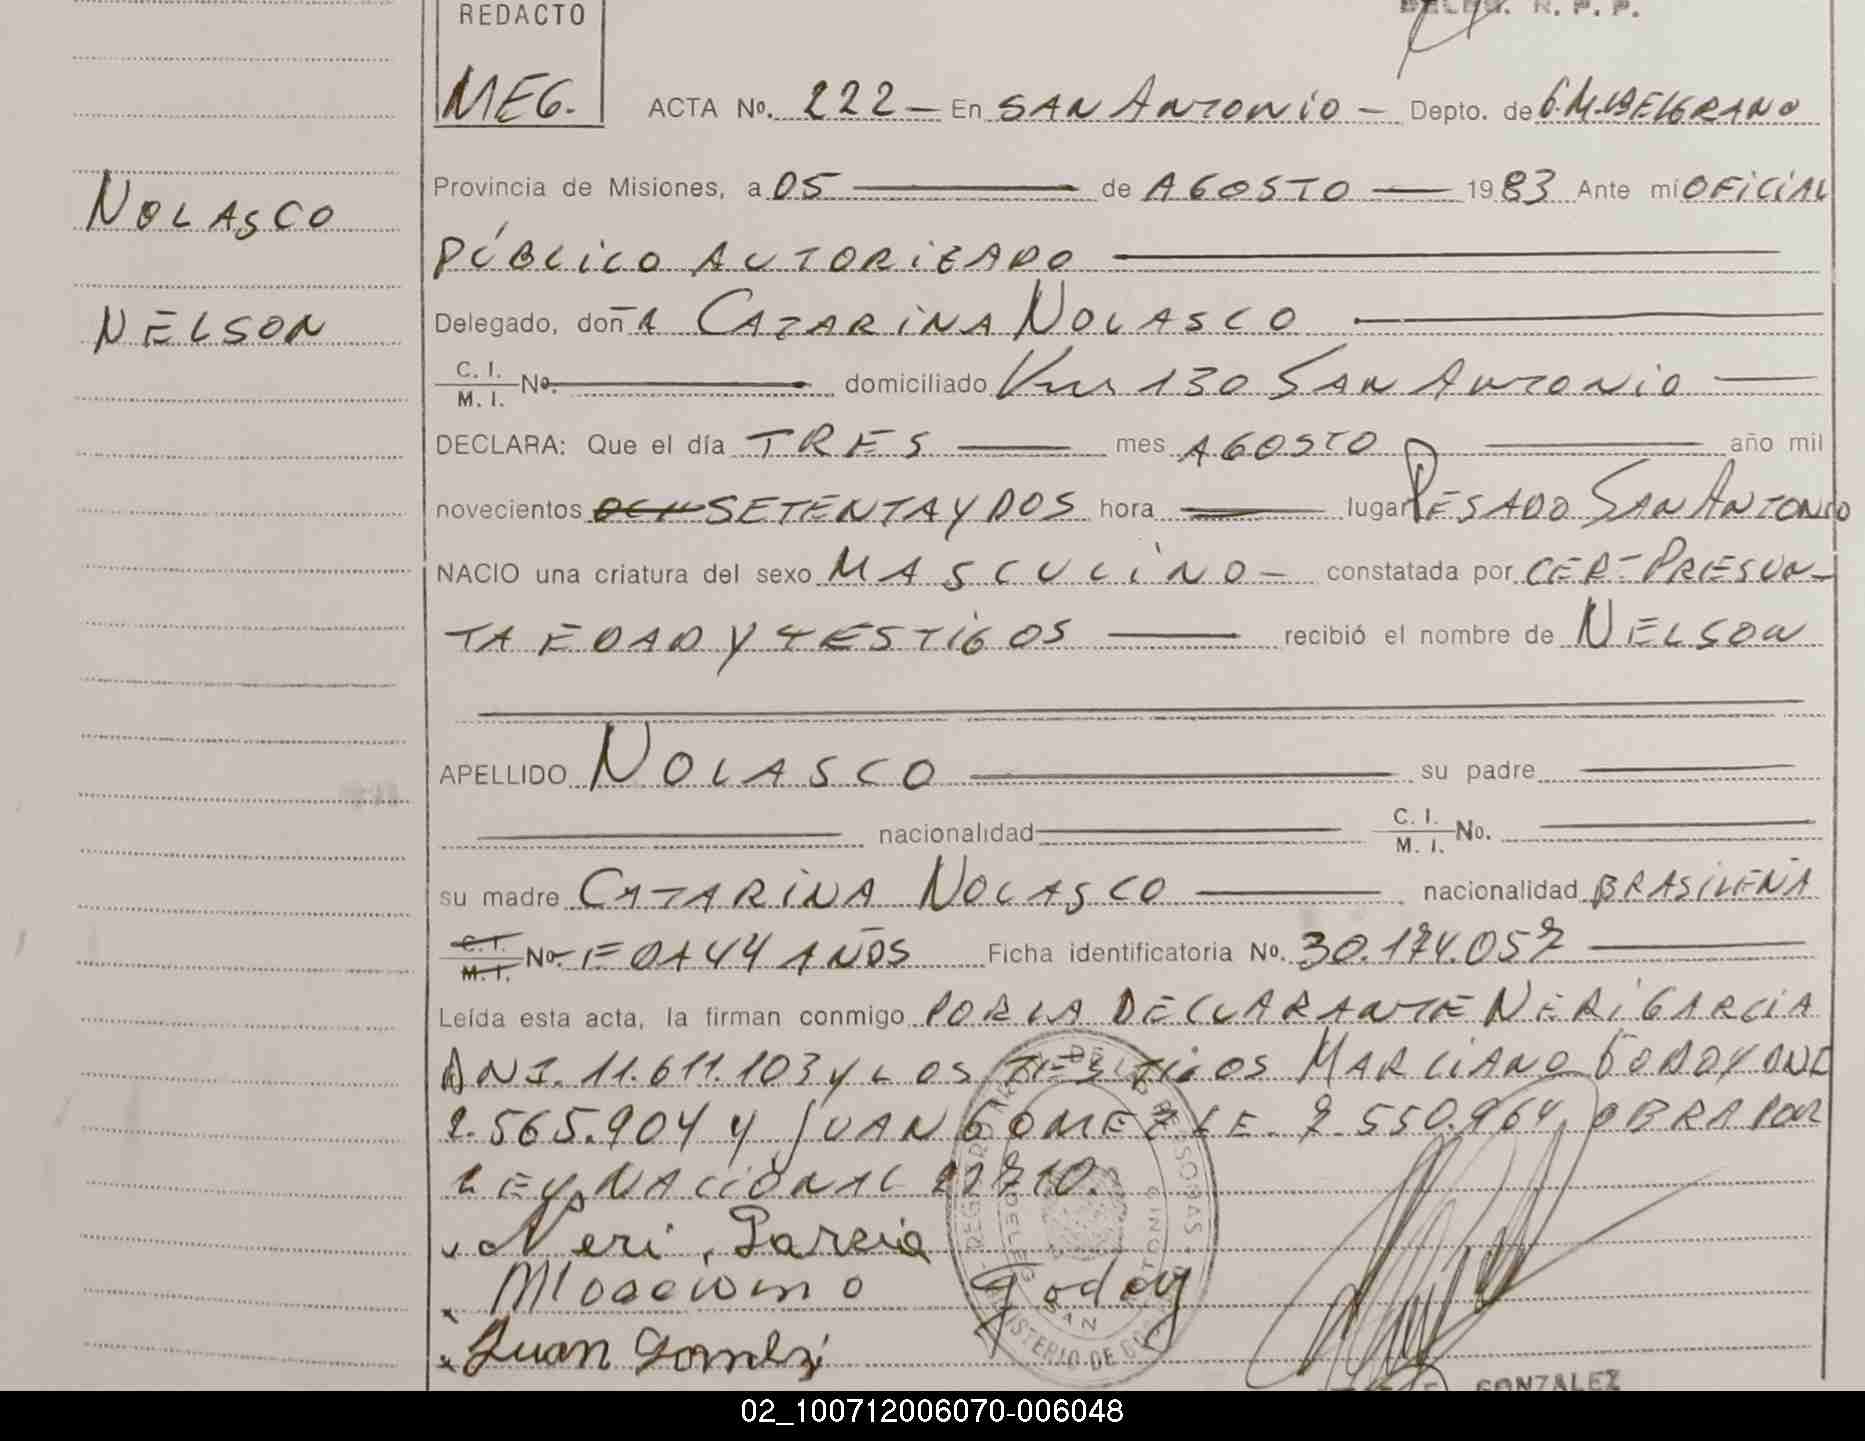 REDACTO
DELEG. R. P. P.
MEG.
ACTA No. 222 — En SAN ANTONIO — Depto. de G.M.BELGRANO
NOLASCO
Provincia de Misiones, a 05 — de AGOSTO — 1983 Ante mi OFICIAL
PÚBLICO AUTORIZADO —
NELSON
Delegado, doñA CATARINA NOLASCO —
C. I.
M. I. No. — domiciliado Km 130 SAN ANTONIO —
DECLARA: Que el día TRES — mes AGOSTO — año mil
novecientos SETENTA Y DOS hora — lugar PESADO SAN ANTONIO
NACIO una criatura del sexo MASCULINO — constatada por CER- PRESUN-
TA EDAD Y TESTIGOS — recibió el nombre de NELSON
APELLIDO NOLASCO — su padre —
— nacionalidad — C. I.
M. I. No. —
su madre CATARINA NOLASCO — nacionalidad BRASILEÑA
C. I.
M. I. No. EDAD 44 AÑOS Ficha identificatoria No. 30.174.057 —
Leída esta acta, la firman conmigo POR LA DECLARANTE NERI GARCIA
DNI. 11.611.103 y LOS TESTIGOS MARCIANO GODOY DNI
7.565.904 y JUAN GOMEZ LE. 7.550.964, OBRA POR
LEY NACIONAL 22710.
x Neri Garcia
x Marciano Godoy
x Juan Gomez
REGISTRO DE LAS PERSONAS
MINISTERIO DE GOB
DELEG
SAN ANTONIO
GONZALEZ
02_100712006070-006048